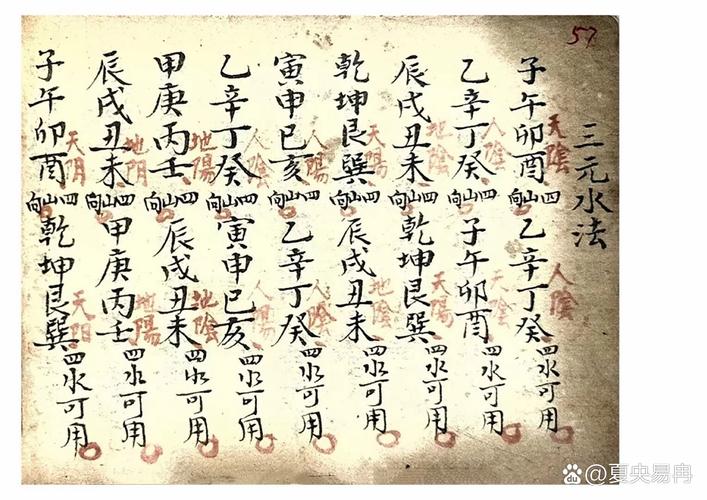 57
三元水法
子午卯酉天陰四山向乙辛丁癸人陰四水可用
乙辛丁癸人陰四山向子午卯酉天陰四水可用
辰戌丑未地陰四山向乾坤艮巽天陽四水可用
乾坤艮巽天陽四山向辰戌丑未地陰四水可用
寅申巳亥人陽四山向乙辛丁癸人陰四水可用
乙辛丁癸人陰四山向寅申巳亥人陽四水可用
甲庚丙壬地陽四山向辰戌丑未地陰四水可用
辰戌丑未地阴四山向甲庚丙壬地陽四水可用
子午卯酉天阴四山向乾坤艮巽天阳四水可用
du@夏央易冉